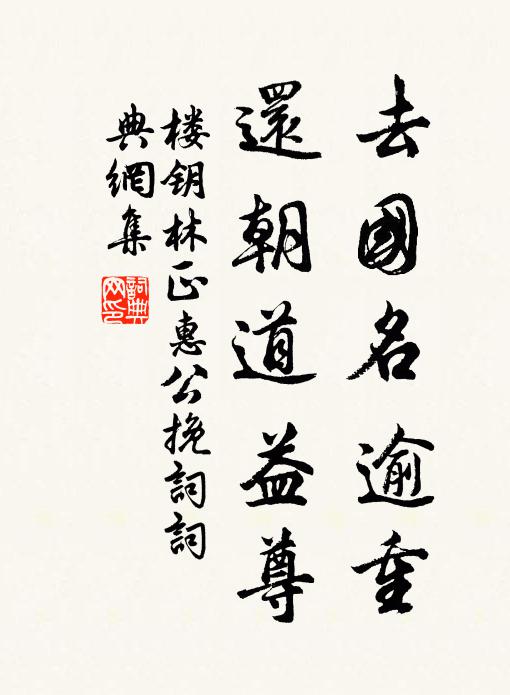 去國名逾重
還朝道益尊
楼钥林正惠公挽詞詞
典網集
詞典网印